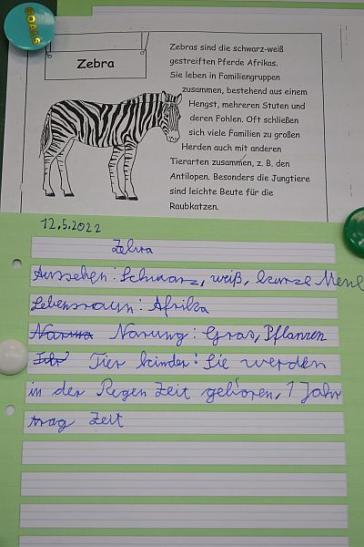 GOALS
Zebra
Zebras sind die schwarz-weiß
gestreiften Pferde Afrikas.
Sie leben in Familiengruppen
zusammen, bestehend aus einem
Hengst, mehreren Stuten und
deren Fohlen. Oft schließen
sich viele Familien zu großen
Herden auch mit anderen
Tierarten zusammen, z. B. den
Antilopen. Besonders die Jungtiere
sind leichte Beute für die
Raubkatzen.
12.5.2022
Zebra
Aussehen: Schwarz, weiß, kurze
Lebensraum: Afrika
Narung: Gras, Pflanzen
Tier kinder: Sie werden
in der Regen Zeit geboren, 1 Jahr
trag Zeit